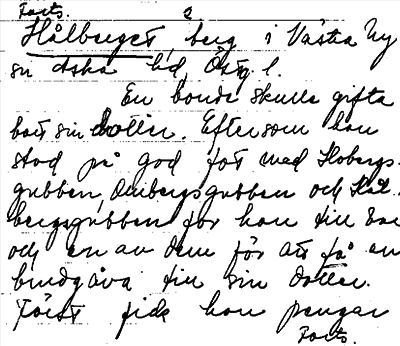 Forts. 2
Hålberget, berg i Västra Ny
sn Aska hd, Östg. l.
En bonde skulle gifta
bort sin dotter. Eftersom han
stod på god fot med Hobergs-
gubben, Ombergsgubben och Hål-
bergsgubben for han till en
och en av dem för att få en
brudgåva till sin dotter.
Först fick han pengar
Forts.